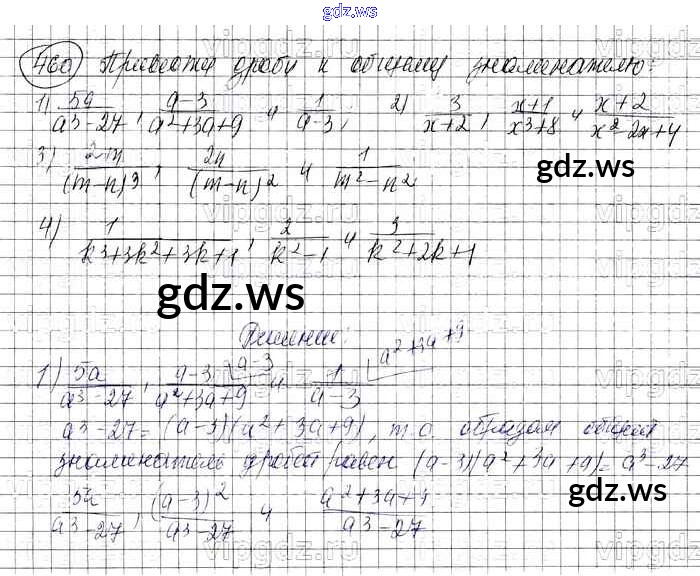 gdz.ws
460 Привести дроби к общему знаменателю:
1) 5a/a³-27, a-3/a²+3a+9 и 1/a-3; 2) 3/x+2, x+1/x³+8 и x+2/x²-2x+4
3) 2m/(m-n)³, 2n/(m-n)² и 1/m²-n²
gdz.ws
4) 1/k³+3k²+3k+1, 2/k²-1 и 3/k²+2k+1
gdz.ws
Решение:
1) 5a/a³-27, a-3/a²+3a+9 (a-3 и 1/a-3 (a²+3a+9
a³-27=(a-3)(a²+3a+9), т.о. образом общий
знаменатель дробей равен (a-3)(a²+3a+9)=a³-27
gdz.ws
5a/a³-27, (a-3)²/a³-27 и a²+3a+9/a³-27